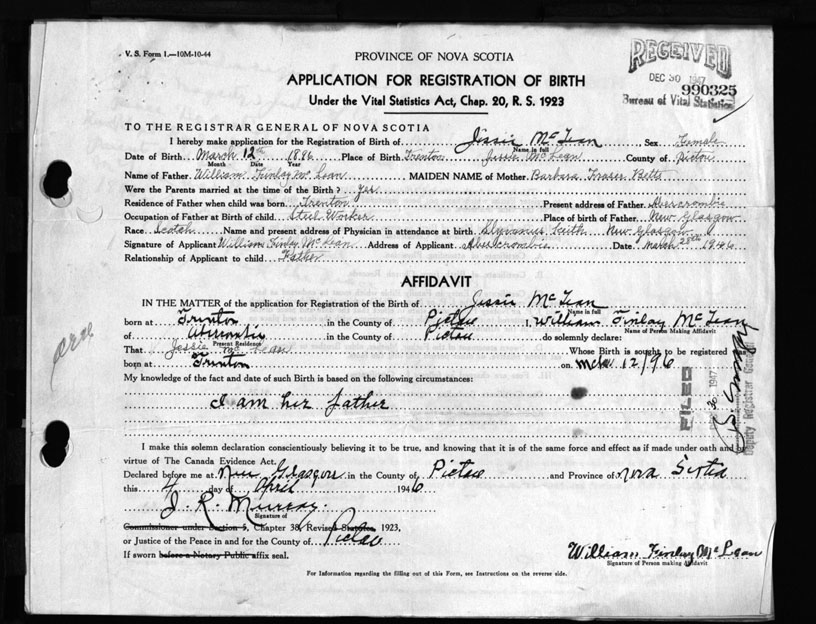 V. S. Form 1.—10M-10-44
PROVINCE OF NOVA SCOTIA
RECEIVED
DEC 30 1947
990325
Bureau of Vital Statistics
APPLICATION FOR REGISTRATION OF BIRTH
Under the Vital Statistics Act, Chap. 20, R. S. 1923
TO THE REGISTRAR GENERAL OF NOVA SCOTIA
I hereby make application for the Registration of Birth of Jessie McLean Sex Female
Name in full
Date of Birth March 12th 1896 Place of Birth Trenton Jessie McLean County of Pictou
Month Date Year
Name of Father William Finlay McLean MAIDEN NAME of Mother Barbara Fraser Betts
Were the Parents married at the time of the Birth? yes
Residence of Father when child was born Trenton Present address of Father Abercrombie
Occupation of Father at Birth of child Steel Worker Place of birth of Father New Glasgow
Race Scotch Name and present address of Physician in attendance at birth Keith New Glasgow
Signature of Applicant William Finlay McLean Address of Applicant Abercrombie Date March 28th 1946
Relationship of Applicant to child Father
AFFIDAVIT
IN THE MATTER of the application for Registration of the Birth of Jessie McLean
Name in full
born at Trenton in the County of Pictou I, William Finlay McLean
Name of Person Making Affidavit
of Abercrombie in the County of Pictou do solemnly declare:
Present Residence
That Jessie McLean Whose Birth is sought to be registered was
born at Trenton on Mch 12/96
My knowledge of the fact and date of such Birth is based on the following circumstances:
I am her father
FILED
30 1947
Deputy Registrar General
I make this solemn declaration conscientiously believing it to be true, and knowing that it is of the same force and effect as if made under oath and
virtue of The Canada Evidence Act.
Declared before me at New Glasgow in the County of Pictou and Province of Nova Scotia
this 4 day of April 1946
J. R. Murray
Signature of
Commissioner under Section 5, Chapter 38, Revised Statutes 1923,
or Justice of the Peace in and for the County of Pictou
If sworn before a Notary Public affix seal.
William Finlay McLean
Signature of Person making Affidavit
For Information regarding the filling out of this Form, see Instructions on the reverse side.